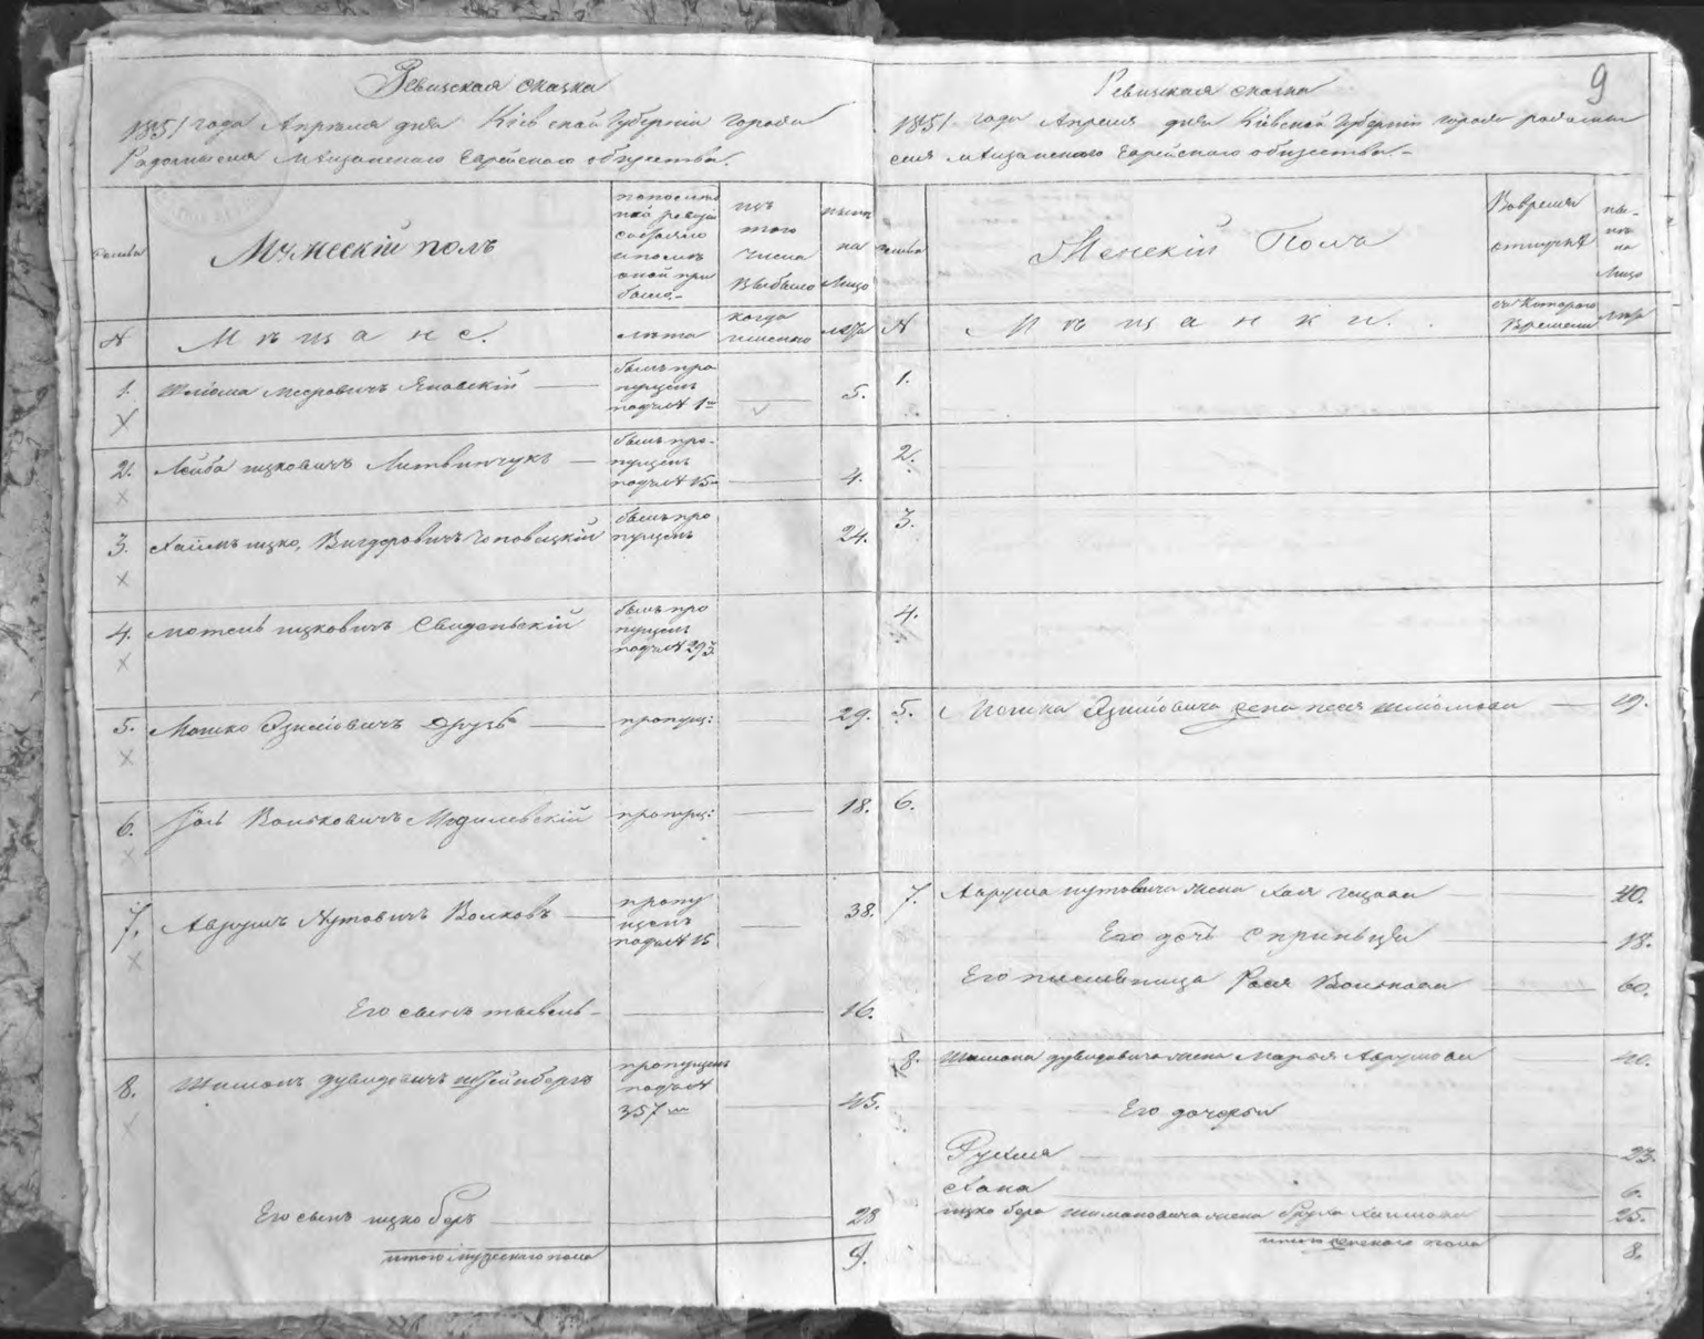 Ревизская сказка
1851 года Апреля дня Кіевской Губерніи города
Радомысля мѣщанскаго Еврейскаго общества.
семьи
Мужескій полъ
по послѣд
ней ревизіи
состояло
и послѣ
оной при
было
изъ
того
числа
выбыло
нынѣ
на
лицо
№
Мѣщане.
лѣта
когда
именно
лѣта
1.
Шлиома Мееровичъ Яновскій
былъ про
пущенъ
подъ № 1
5.
2.
Лейба ицковичъ Литвинчукъ
былъ про-
пущенъ
подъ № 15
4.
3.
Хаимъ ицко, Вигдоровичъ
былъ про
пущенъ
24.
4.
Мотель ицковичъ Свидельскій
былъ про
пущенъ
подъ № 293
5.
Мошко Зузь
пропущ:
29.
6.
Іось Вольковичъ Могилевскій
пропущ:
18.
7.
Аврумъ Нутовичъ Волковъ
пропу
щенъ
подъ № 15
38.
Его сынъ
16.
8.
Шимонъ Дувидовичъ Штейнбергъ
пропущенъ
подъ №
357
45.
Его сынъ ицко беръ
28
итого мужескаго пола
9.
9
Ревизская сказка
1851 года Апреля дня Кіевской Губерніи города Радомы
сля мѣщанскаго Еврейскаго общества.-
семьи
Женскій Полъ
Во время
отлучкѣ
ны-
нѣ
на
лицо
№
Мѣщанки.
съ котораго
времени
лѣта
1.
2.
3.
4.
5.
Мошка жена песя шлиомова
19.
6.
7.
Аврума нутовича жена Хая Ицкова
40.
Его дочь Сприньця
18.
Его племѣнница Рася Волькова
60.
8.
Шимона дувидовича жена Марья Аврумова
40.
Его дочери
Рухля
23.
Хана
6.
ицко бера шимановича жена Бруха Хаимова
25.
итого женскаго пола
8.